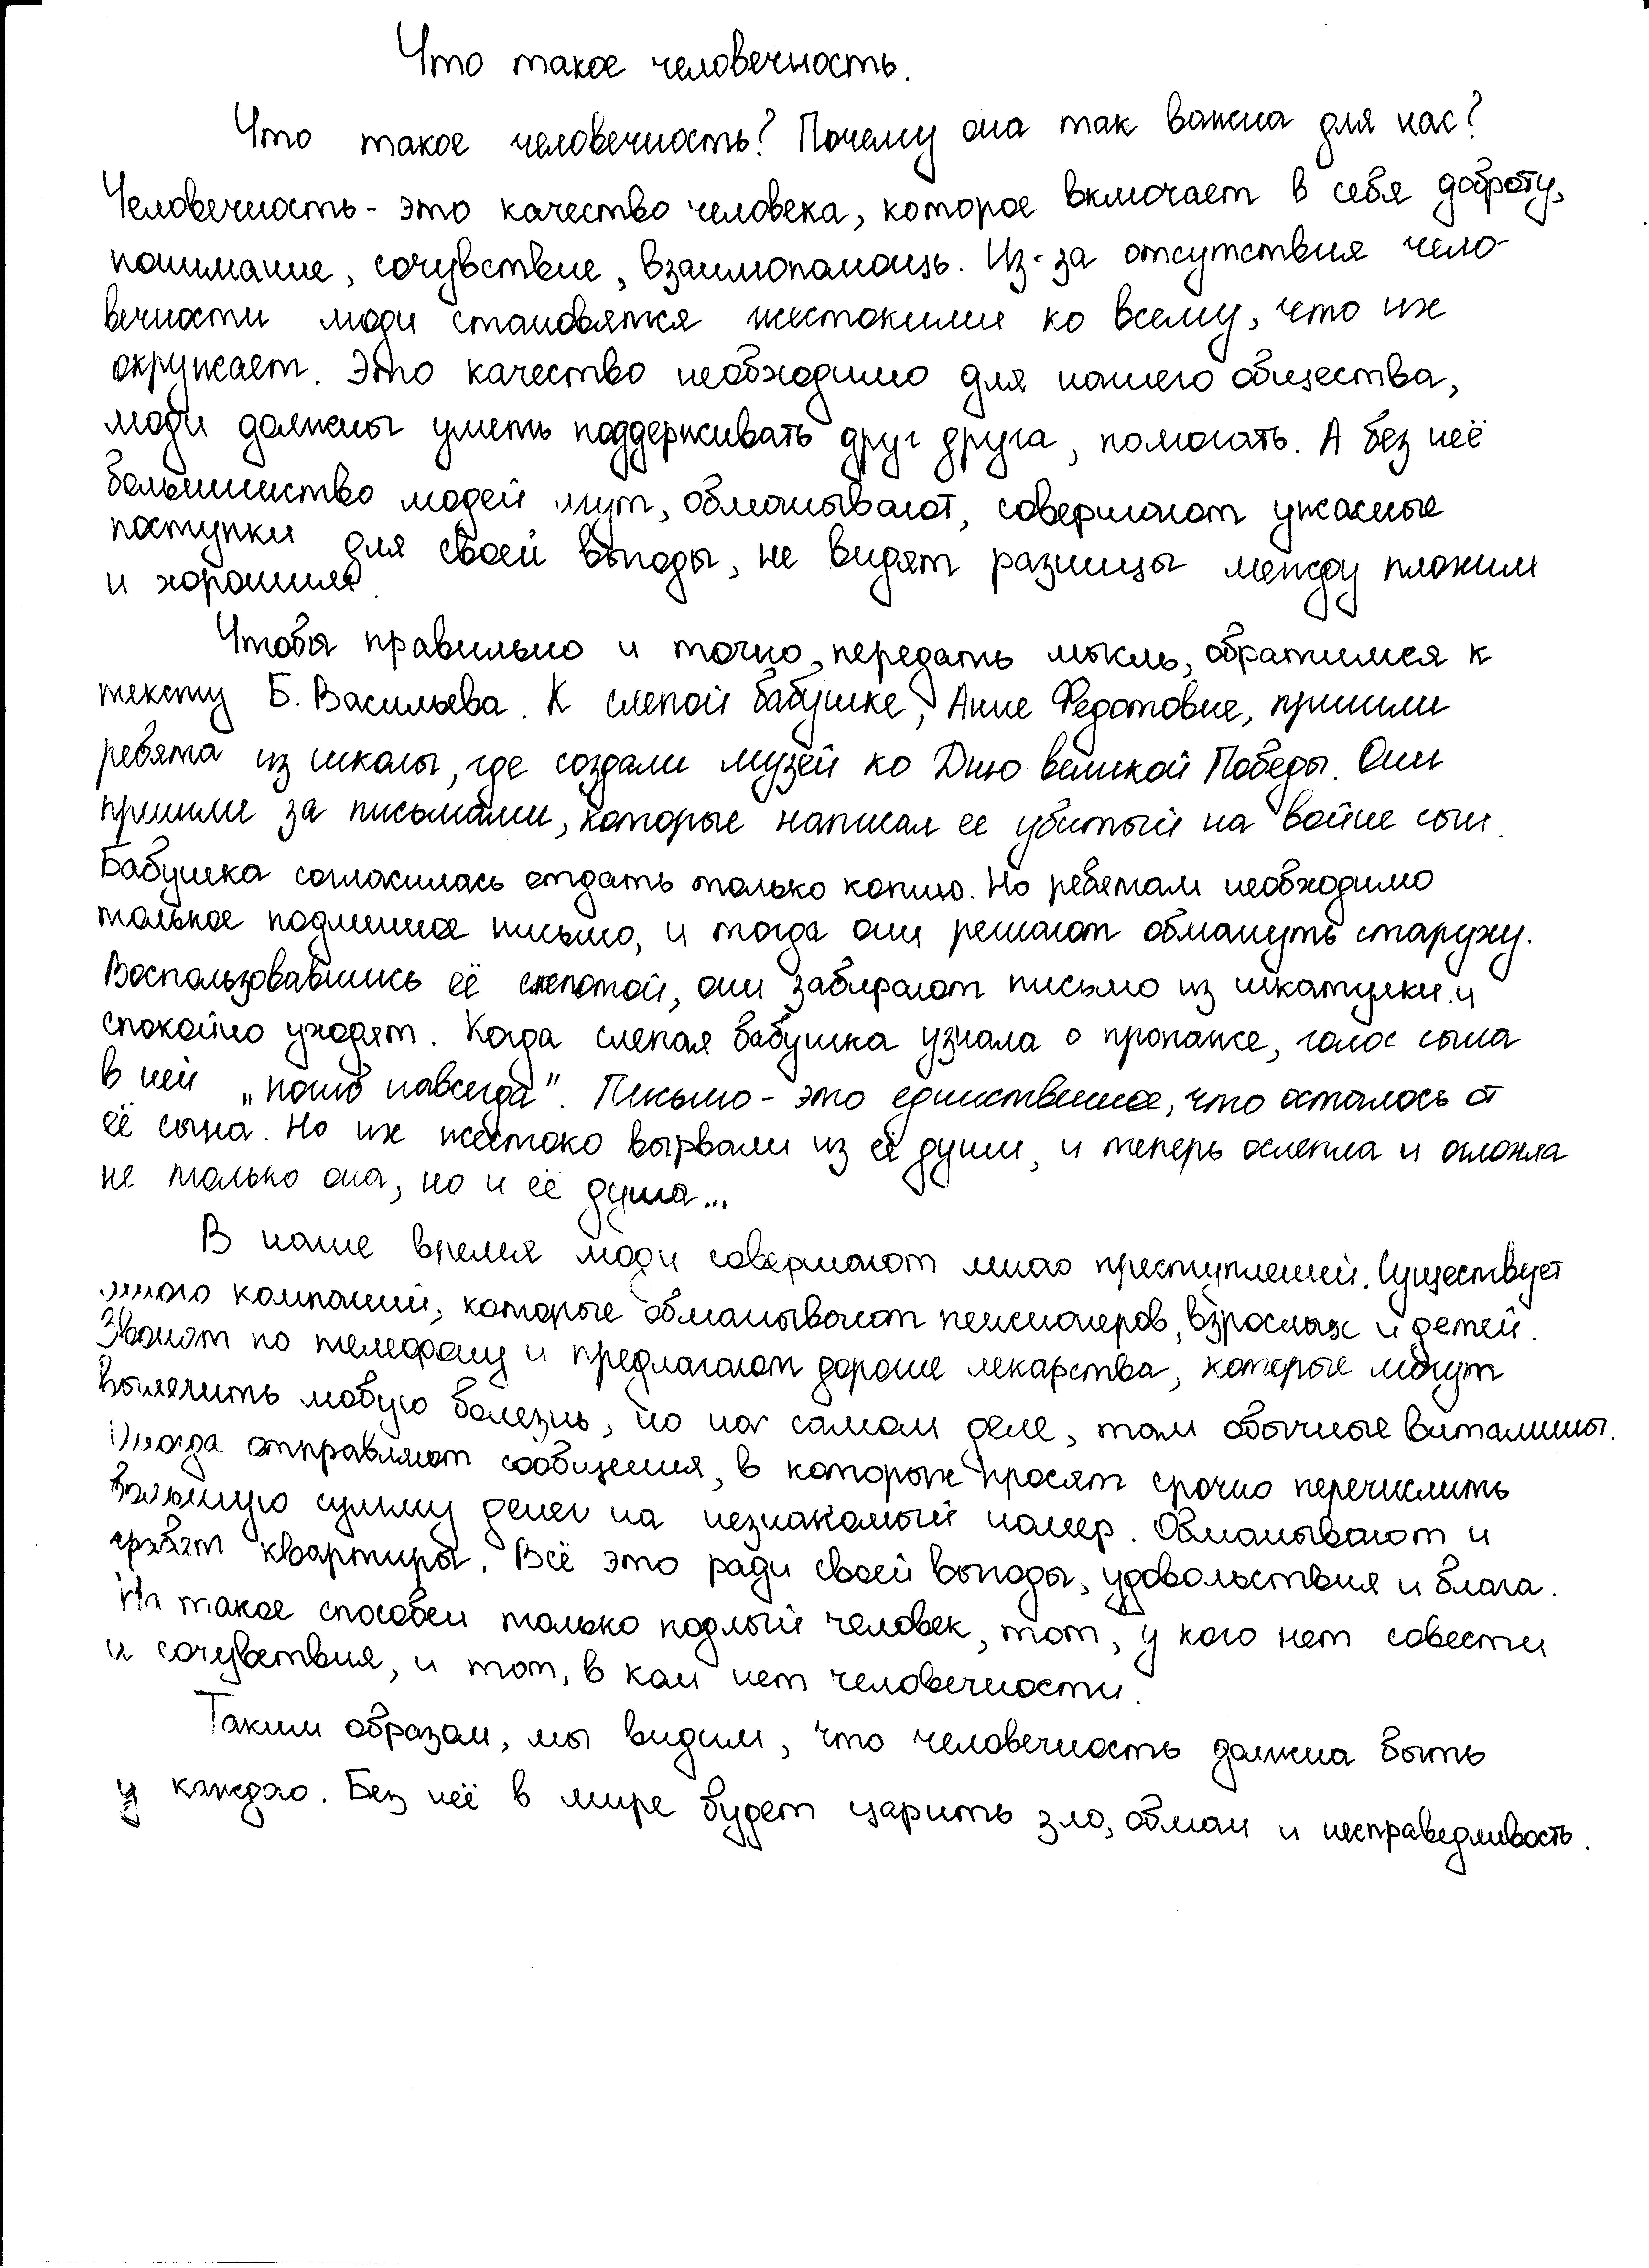 Что такое человечность.
Что такое человечность? Почему она так важна для нас?
Человечность - это качество человека, которое включает в себя доброту,
понимание, сочувствие, взаимопомощь. Из-за отсутствия чело-
вечности люди становятся жестокими ко всему, что их
окружает. Это качество необходимо для нашего общества,
люди должны уметь поддерживать друг друга, помогать. А без неё
большинство людей лгут, обманывают, совершают ужасные
поступки для своей выгоды, не видят разницы между плохим
и хорошим.
Чтобы правильно и точно передать мысль, обратимся к
тексту Б. Васильева. К слепой бабушке, Анне Федотовне, пришли
ребята из школы, где создали музей ко Дню великой Победы. Они
пришли за письмами, которые написал ее убитый на войне сын.
Бабушка согласилась отдать только копию. Но ребятам необходимо
только подлинное письмо, и тогда они решают обмануть старуху.
Воспользовавшись её слепотой, они забирают письмо из шкатулки и
спокойно уходят. Когда слепая бабушка узнала о пропаже, голос сына
в ней "погиб навсегда". Письмо - это единственное, что осталось от
её сына. Но их жестоко вырвали из её души, и теперь ослепла и оглохла
не только она, но и её душа...
В наше время люди совершают много преступлений. Существует
много компаний, которые обманывают пенсионеров, взрослых и детей.
Звонят по телефону и предлагают дорогие лекарства, которые могут
вылечить любую болезнь, но на самом деле, там обычные витамины.
Иногда отправляют сообщения, в которых просят срочно перечислить
большую сумму денег на незнакомый номер. Обманывают и
грабят квартиры. Всё это ради своей выгоды, удовольствия и блага.
На такое способен только подлый человек, тот, у кого нет совести
и сочувствия, и тот, в ком нет человечности.
Таким образом, мы видим, что человечность должна быть
у каждого. Без неё в мире будет царить зло, обман и несправедливость.